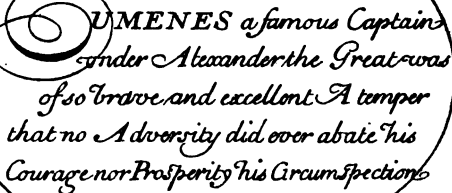 EUMENES a famous Captain
under Alexander the Great was
of so brave and excellent A temper
that no Adversity did ever abate his
Courage nor Proſperity his Circumſpection